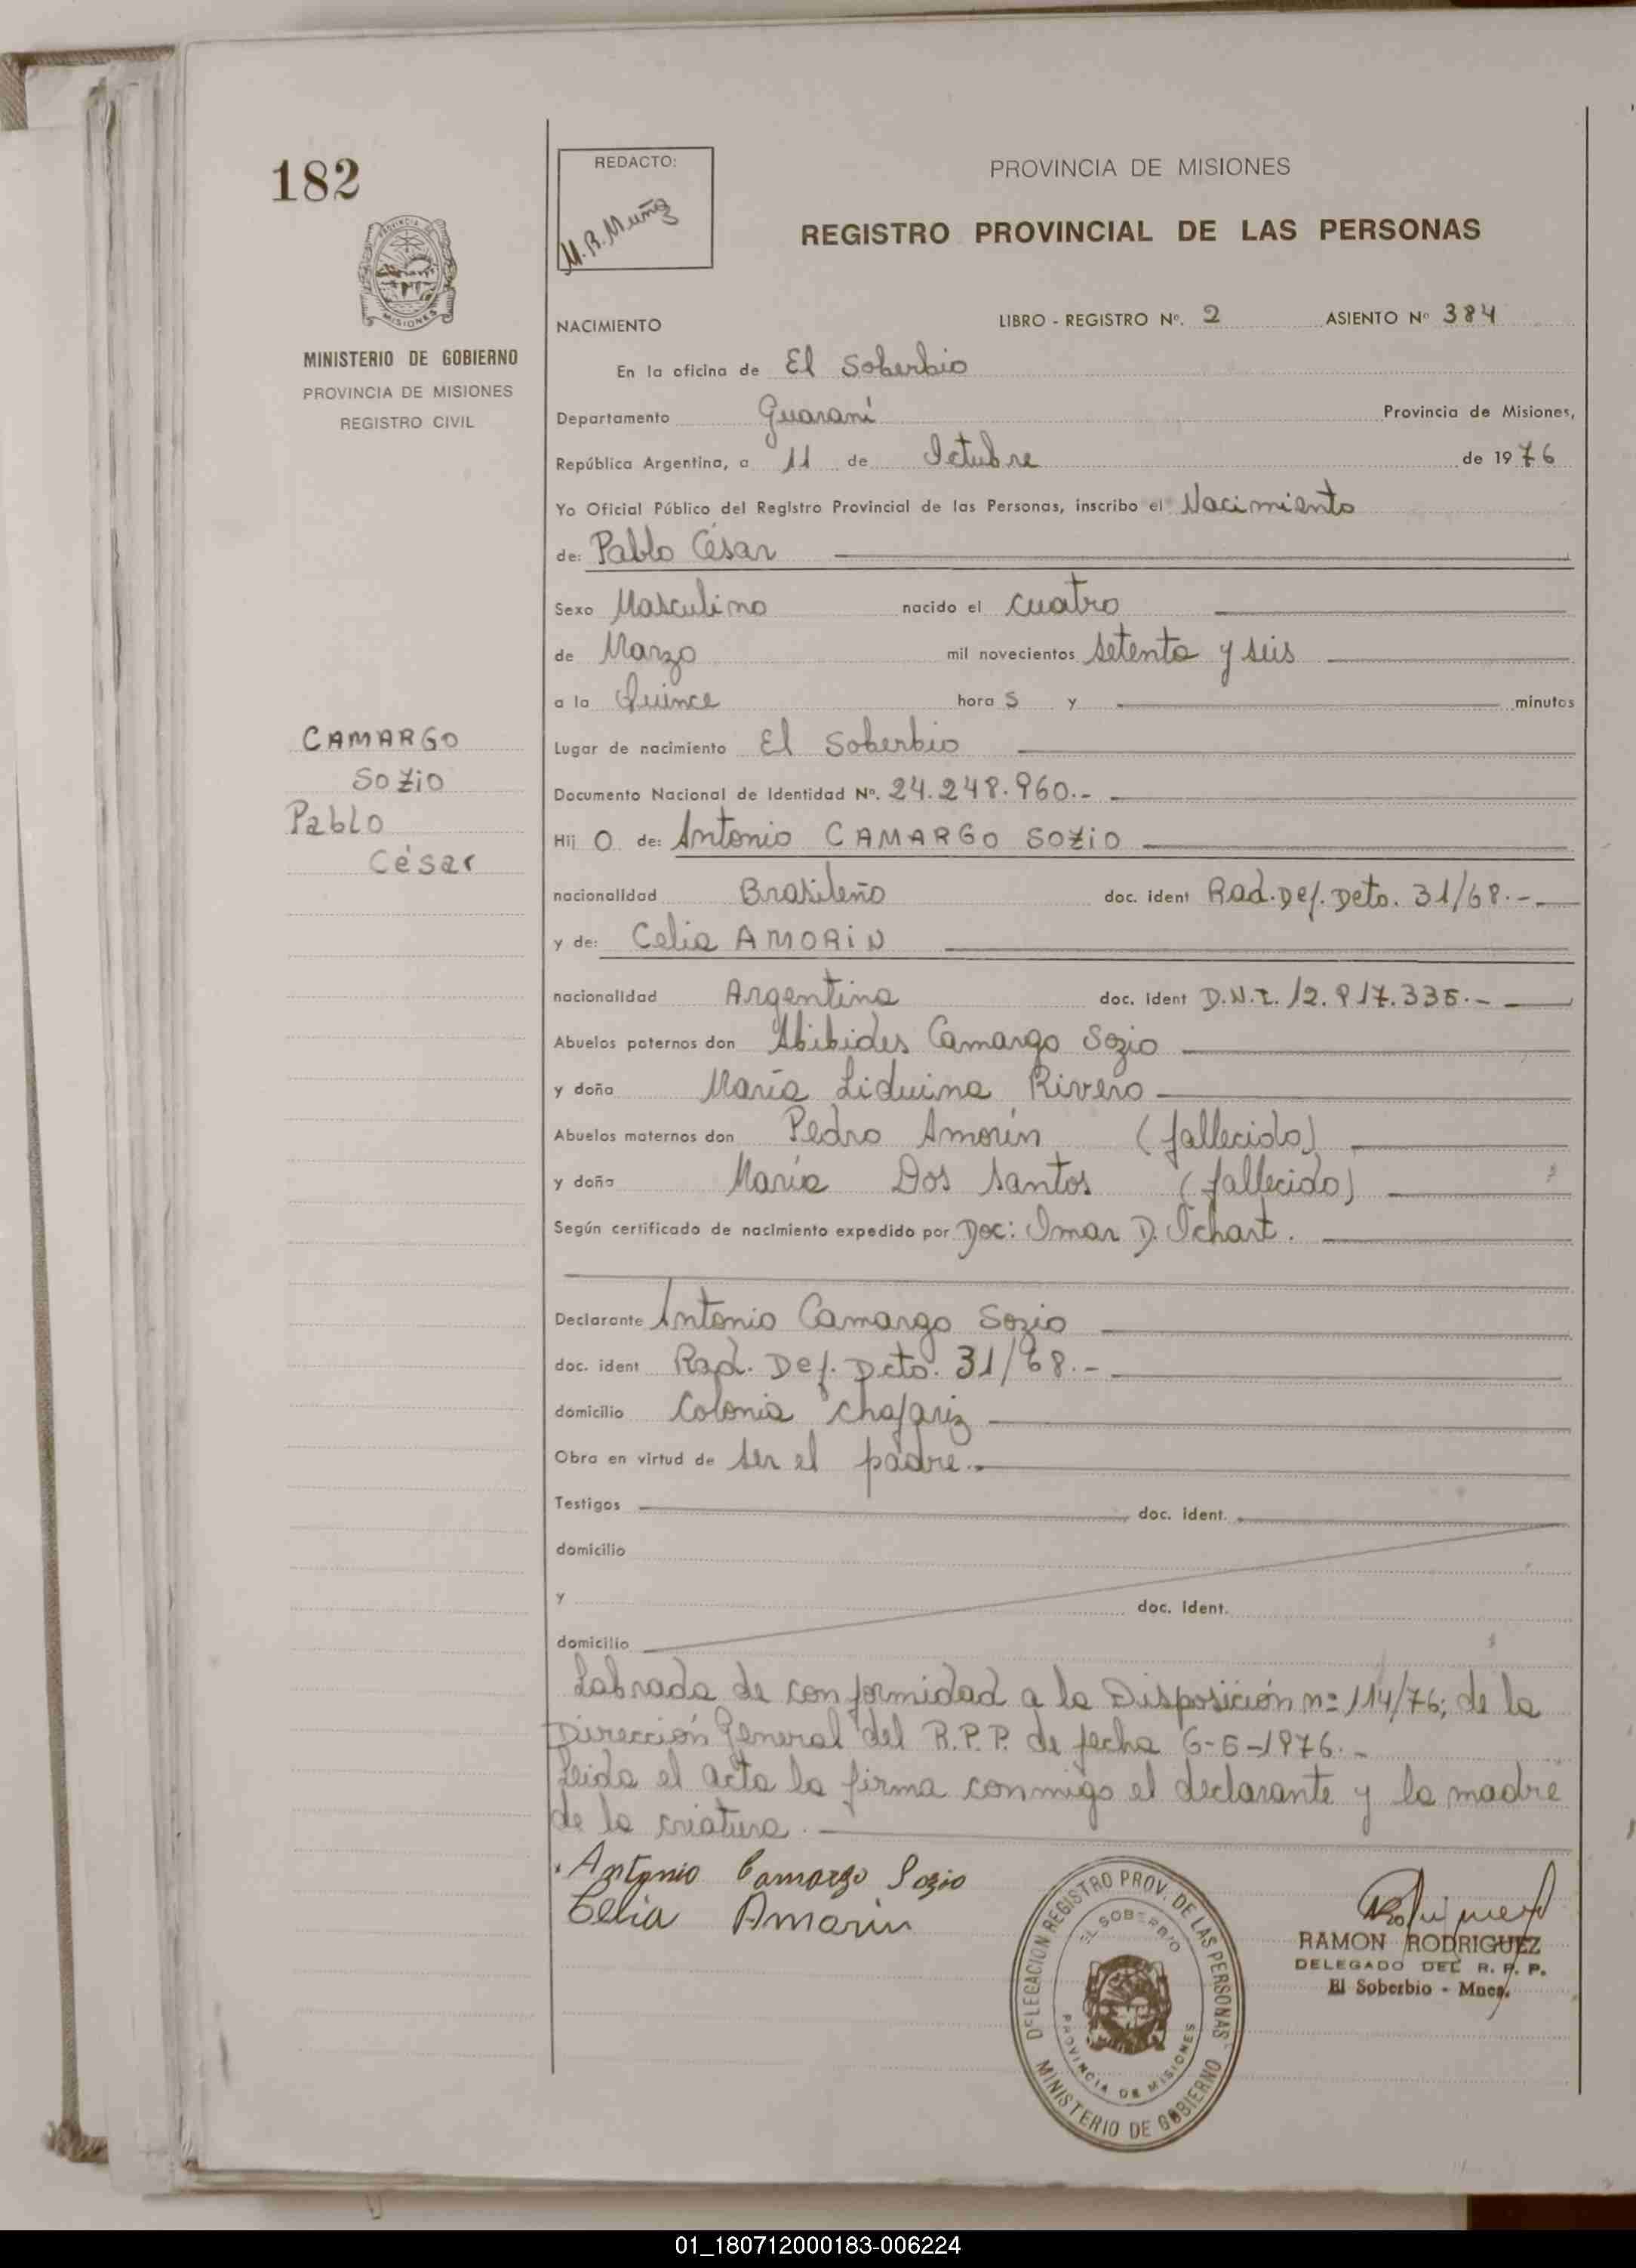 182
REDACTO:
M.R. Muñoz
PROVINCIA DE MISIONES
REGISTRO PROVINCIAL DE LAS PERSONAS
MISIONES
MINISTERIO DE GOBIERNO
PROVINCIA DE MISIONES
REGISTRO CIVIL
NACIMIENTO LIBRO - REGISTRO Nº. 2 ASIENTO Nº 384
En la oficina de El Soberbio
Departamento Guaraní Provincia de Misiones,
República Argentina, a 11 de Octubre de 1976
Yo Oficial Público del Registro Provincial de las Personas, inscribo el Nacimiento
de: Pablo César
Sexo Masculino nacido el cuatro
de Marzo mil novecientos setenta y seis
a la Quince hora s y minutos
CAMARGO
SOZIO
Pablo
César
Lugar de nacimiento El Soberbio
Documento Nacional de Identidad Nº. 24.248.960.-
Hij o de: Antonio CAMARGO SOZIO
nacionalidad Brasileño doc. ident Rad. Def. Deto. 31/68.-
y de: Celia AMORIN
nacionalidad Argentina doc. ident D.N.I. 12.917.335.-
Abuelos paternos don Abibides Camargo Sozio
y doña María Liduina Rivero
Abuelos maternos don Pedro Amorín (fallecido)
y doña María Dos Santos (fallecido)
Según certificado de nacimiento expedido por Doc: Omar D. Ichart.
Declarante Antonio Camargo Sozio
doc. ident Rad. Def. Dcto. 31/68.-
domicilio Colonia Chafariz
Obra en virtud de ser el padre.-
Testigos doc. ident.
domicilio
y doc. ident.
domicilio
Labrada de conformidad a la Disposición nº 114/76, de la
Dirección General del R.P.P. de fecha 6-5-1976.-
Leida el acta la firma conmigo el declarante y la madre
de la criatura.
Antonio Camargo Sozio
Celia Amorin
DELEGACION REGISTRO PROV. DE LAS PERSONAS
EL SOBERBIO
PROVINCIA DE MISIONES
MINISTERIO DE GOBIERNO
RAMON RODRIGUEZ
DELEGADO DEL R. P. P.
El Soberbio - Mnes.
01_180712000183-006224